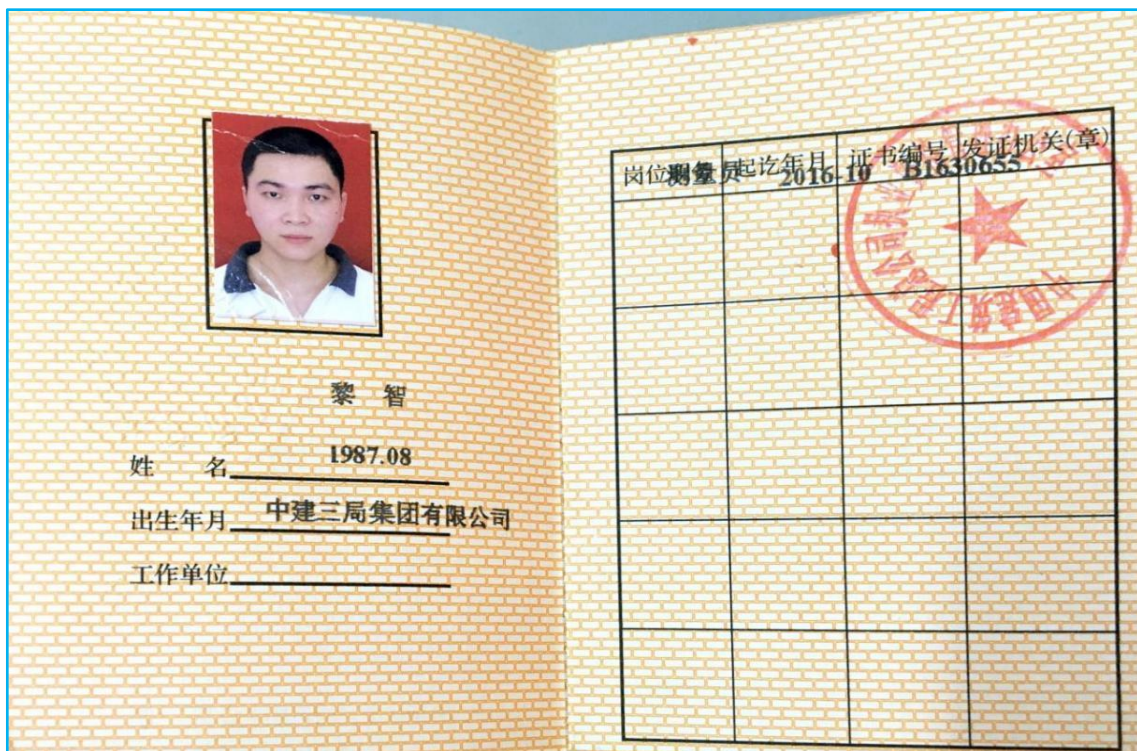 黎 智
姓 名 1987.08
出生年月 中建三局集团有限公司
工作单位
岗位职务 起讫年月 证书编号 发证机关(章)
测量员 2016-10 B1630655
中国建筑工程总公司